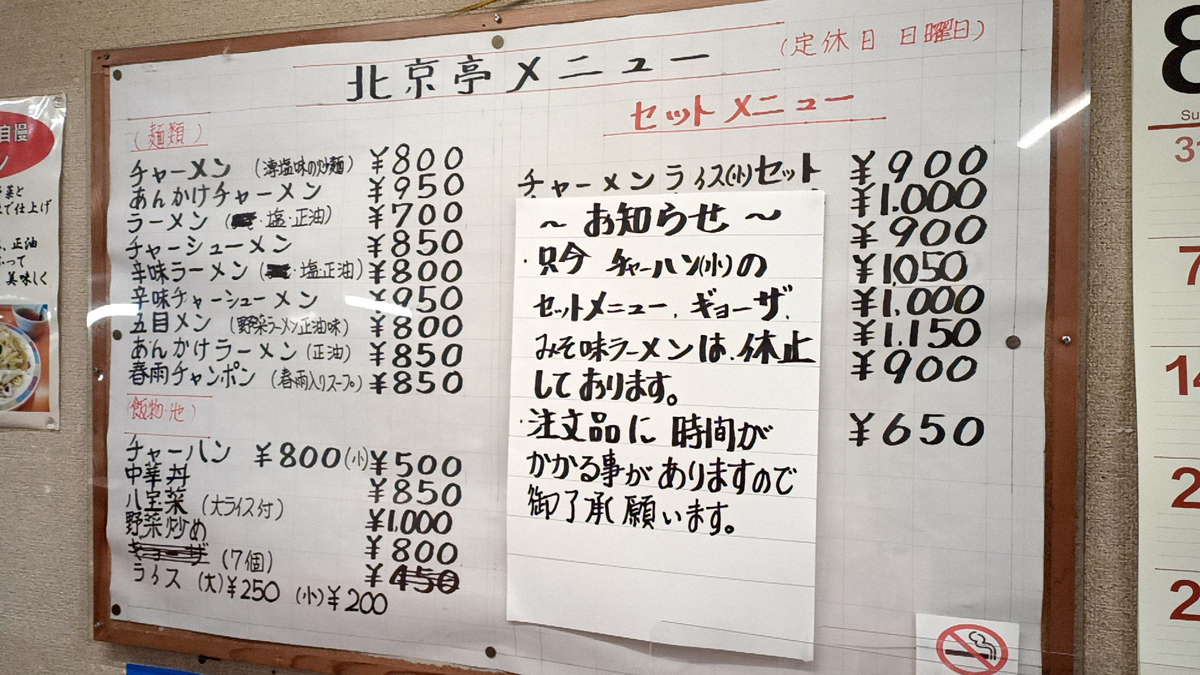 北京亭メニュー
(定休日 日曜日)
(麺類)
チャーメン (薄塩味の炒麺) ¥800
あんかけチャーメン ¥950
ラーメン (塩・正油) ¥700
チャーシューメン ¥850
辛味ラーメン (塩・正油) ¥800
辛味チャーシューメン ¥950
五目メン (野菜ラーメン正油味) ¥800
あんかけラーメン (正油) ¥850
春雨チャンポン (春雨入りスープ) ¥850
(飯物・他)
チャーハン ¥800 (小) ¥500
中華丼 ¥850
八宝菜 (大ライス付) ¥1,000
野菜炒め ¥800
ギョーザ (7個) ¥450
ライス (大) ¥250 (小) ¥200
セットメニュー
チャーメンライス(小)セット ¥900
¥1,000
¥900
¥1,050
¥1,000
¥1,150
¥900
¥650
~お知らせ~
・只今 チャーハン(小)の
セットメニュー、ギョーザ、
みそ味ラーメンは、休止
しております。
・注文品に 時間が
かかる事がありますので
御了承願います。
自慢
で仕上げ
、正油
美味しく
8
Su
31
7
14
2
2